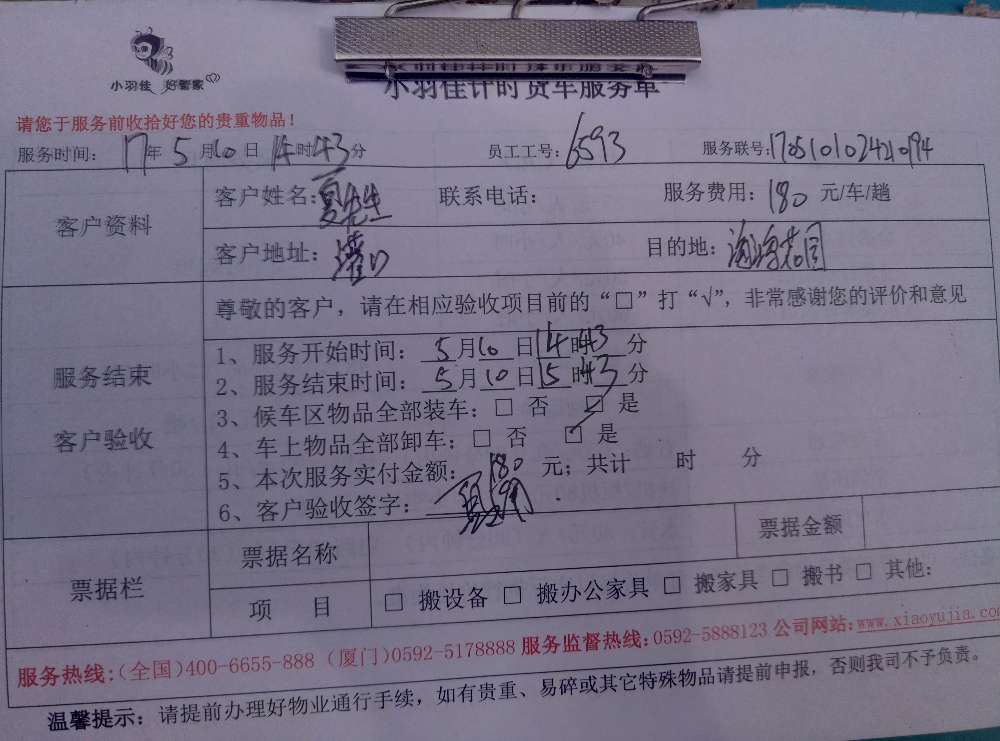 小羽佳 好管家
小羽佳计时货车服务单
请您于服务前收拾好您的贵重物品！
服务时间： 17年 5月10日 14时43分 员工工号：6593 服务联号：
客户资料
客户姓名：夏先生 联系电话： 服务费用：180 元/车/趟
客户地址：灌口 目的地：
尊敬的客户，请在相应验收项目前的“□”打“√”，非常感谢您的评价和意见
服务结束
客户验收
1、服务开始时间：5月10日14时43分
2、服务结束时间：5月10日15时43分
3、候车区物品全部装车：□ 否 □ 是
4、车上物品全部卸车：□ 否 □ 是
5、本次服务实付金额：180 元；共计 时 分
6、客户验收签字：
票据栏
票据名称 票据金额
项 目 □ 搬设备 □ 搬办公家具 □ 搬家具 □ 搬书 □ 其他：
服务热线：（全国）400-6655-888（厦门）0592-5178888 服务监督热线：0592-5888123 公司网站：www.xiaoyujia.com
温馨提示：请提前办理好物业通行手续，如有贵重、易碎或其它特殊物品请提前申报，否则我司不予负责。